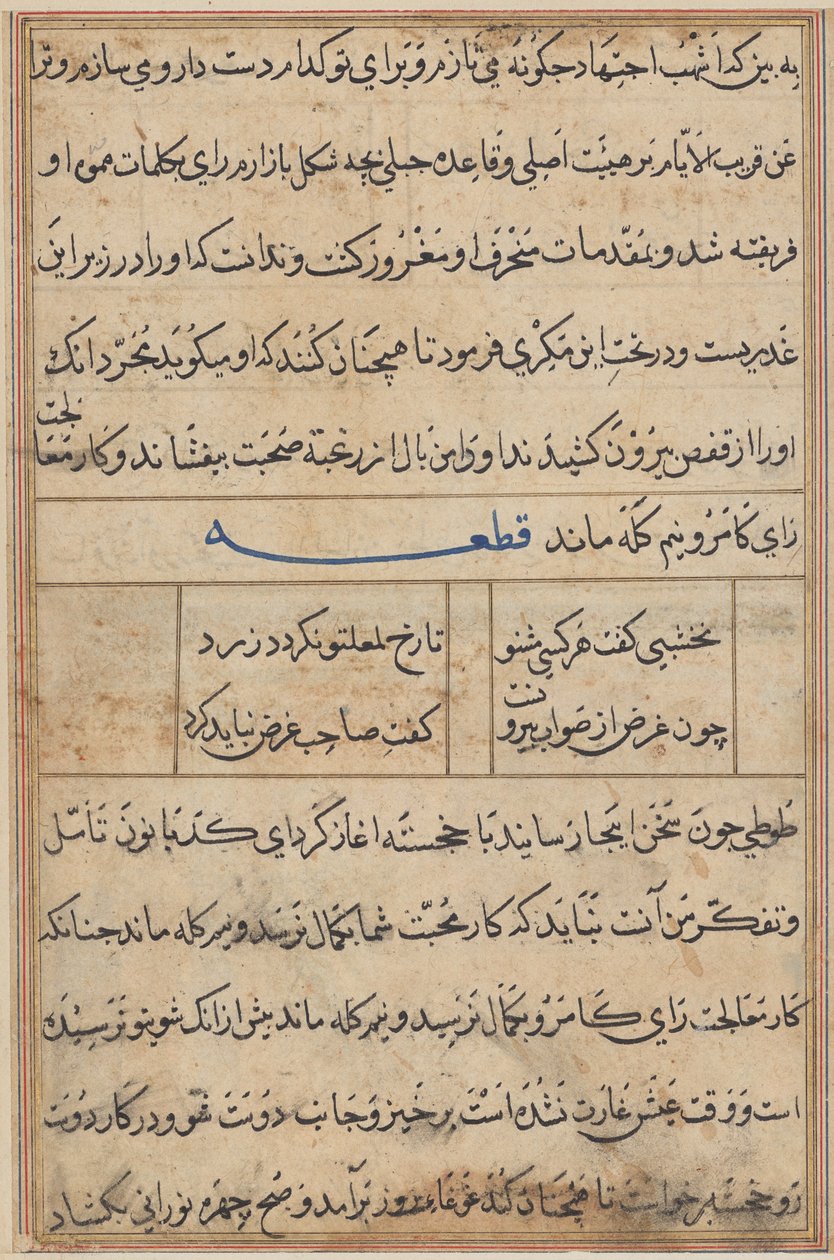 به بین که اَشْهَب اجتِهاد جکُونَه مِي تَازَم وَ بَراي تو کدام دست دارو مي سازم و ترا
عَن قریب الاَیّام بَر هیئَت اَصِلي وَقَاعِده جبلي بچه شکل بازارم راي بکلمات مموه او
فریفته شد و بمُقَدّمات مُنْحَرِف او مَغْرُوْر کشت و ندانست که او را در زیر این
غَدیریست و در تحتِ این مَکِرْي فرمود تا همچَنَان کُنَند که او میکُویَد بمُجَرّد انک
او را از قفص بیرُوْن کشیدَند او دامن بال از رغبة صُحبَت بیفشاند و کار مَعَالجت
رَاي کَامَرُو نیم کَلَه ماند قطعه
نخشبي کفت هَر کسي مشنو تا رخ لعلتو نکردد زرد
چون غرض از صَواب بیرونست کفتِ صاحِب غرض نباید کرد
طُوطِي جونَ سُخَن اینجا رَسانید بَا خجستَه اغاز کَرد اي کَدبَانون تَأَمّل
و تفکّر مَن آنست نَبَایَد که کار مُحبّت شما بکَمَال نَرسَد و نیم کله ماند جنانکه
کار مَعَالجت رَاي کَامَرُو بکَمَال نَرَسِید و نیم کله ماند بیش از انک شویتو نَرَسِیْدَه
است وَ وَقت عَیْش غَارَت نَشُدَه اَسْتَ برخَیز وَ جَانب دوَسَت شو و در کار دوست
رَو خجسته برخواست تا همچنَان کُنَد غَوغَاء روز بَرآمد وَ صُبح چِهَرَه نوراني بکشاد